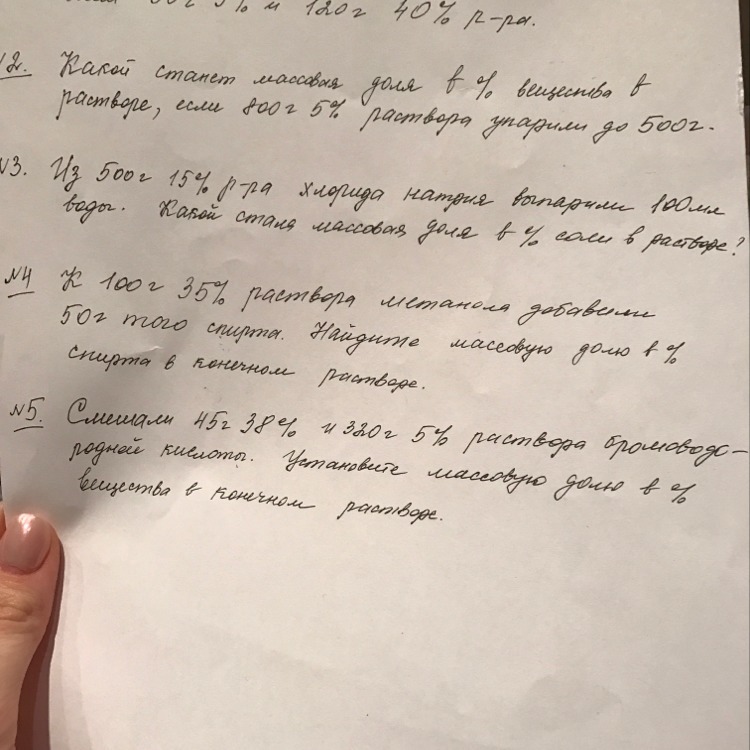 и 120г 40% р-ра.
2. Какой станет массовая доля в % вещества в
растворе, если 800г 5% раствора упарили до 500г.
N3. Из 500г 15% р-ра хлорида натрия выпарили 100мл
воды. Какой стала массовая доля в % соли в растворе?
N4 К 100г 35% раствора метанола добавили
50г того спирта. Найдите массовую долю в %
спирта в конечном растворе.
N5. Смешали 45г 38% и 320г 5% раствора бромоводо-
родной кислоты. Установите массовую долю в %
вещества в конечном растворе.